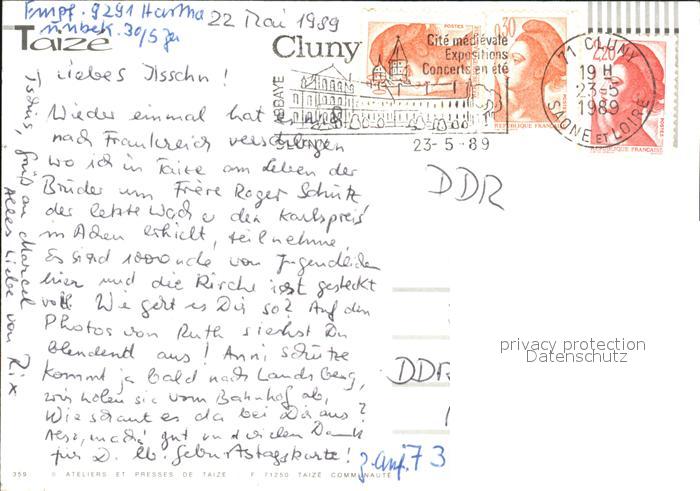 Empf. 9291 Hartha
22 Mai 1989
unbek. 30/5
Taizé
Cluny
ABBAYE
CLUNY
Cité médiévale
Expositions
Concerts en été
23-5-89
POSTES
0,30
REPUBLIQUE FRANÇAISE
71 CLUNY
19 H
23-5
1989
SAONE ET LOIRE
2,20
POSTES
REPUBLIQUE FRANÇAISE
Liebes
Wieder einmal hat es mich
nach Frankreich verschlagen
wo ich in Taize am Leben der
Brüder um Frère Roger Schütz,
der letzte Woche den Karlspreis
in Achen erhielt, teilnehme.
Es sind 1000nde von Jugendlichen
hier und die Kirche ist gesteckt
voll. Wie geht es Dir so? Auf den
Photos von Ruth siehst Du
blendend aus! Anni Schütze
kommt ja bald nach Landsberg,
wir holen sie vom Bahnhof ab.
Wie schaut es da bei Dir aus?
Also, mach's gut und vielen Dank
für D. lb. Geburtstagskarte!
Tschüs, Gruß an Marcel
Alles Liebe von
DDR
DDR
privacy protection
Datenschutz
73
359 © ATELIERS ET PRESSES DE TAIZÉ F 71250 TAIZÉ COMMUNAUTÉ